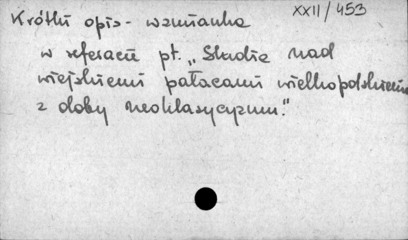 XXII/453
Krótki opis - wzmianka
w referacie pt. „Studia nad
wiejskiemi pałacami wielkopolskiemi
z doby neoklasycyzmu."